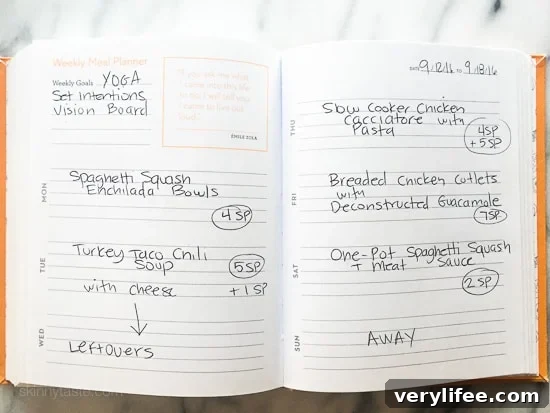 Weekly Meal Planner
Weekly Goals YOGA
Set Intentions
Vision Board
"If you ask me what
I came into this life
to do, I will tell you:
I came to live out
loud."
ÉMILE ZOLA
MON
Spaghetti Squash
Enchilada Bowls
4 SP
TUE
Turkey Taco Chili
Soup
5 SP
with cheese +1 SP
WED
Leftovers
DATE 9/12/16 TO 9/18/16
THU
Slow Cooker Chicken
Cacciatore with
Pasta
4SP
+5SP
FRI
Breaded Chicken Cutlets
with
Deconstructed Guacamole
7SP
SAT
One-Pot Spaghetti Squash
+ Meat Sauce
2 SP
SUN
AWAY
skinnytaste.com
verylifee.com